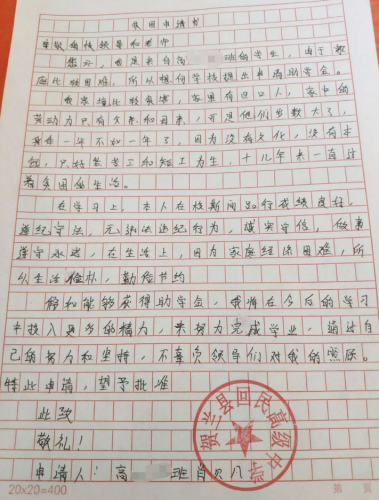 贫困申请书
尊敬的学校领导和老师
您好，我是来自高 班的学生，由于家
庭比较困难，所以想向学校提出申请助学金。
我家境比较贫寒，家里有四口人，家中的
劳动力只有父亲和母亲，可是他们岁数大了，
身体一年不如一年了，因为没有文化，没有本
钱，只好靠苦工和短工为生，十几年来一直过
着贫困的生活。
在学习上，本人在校期间品行成绩良好，
遵纪守法，无违法违纪行为，诚实守信，做事
遵守承诺，在生活上，因为家庭经济困难，所
以生活俭朴，勤俭节约
假如能够获得助学金，我将在今后的学习
中投入更多的精力，来努力完成学业，通过自
己的努力和坚持，不辜负领导们对我的照顾。
特此申请，望予批准
此致
敬礼！
申请人：高 班肖贝儿
贺兰县回民高级中学
20×20=400
第 页